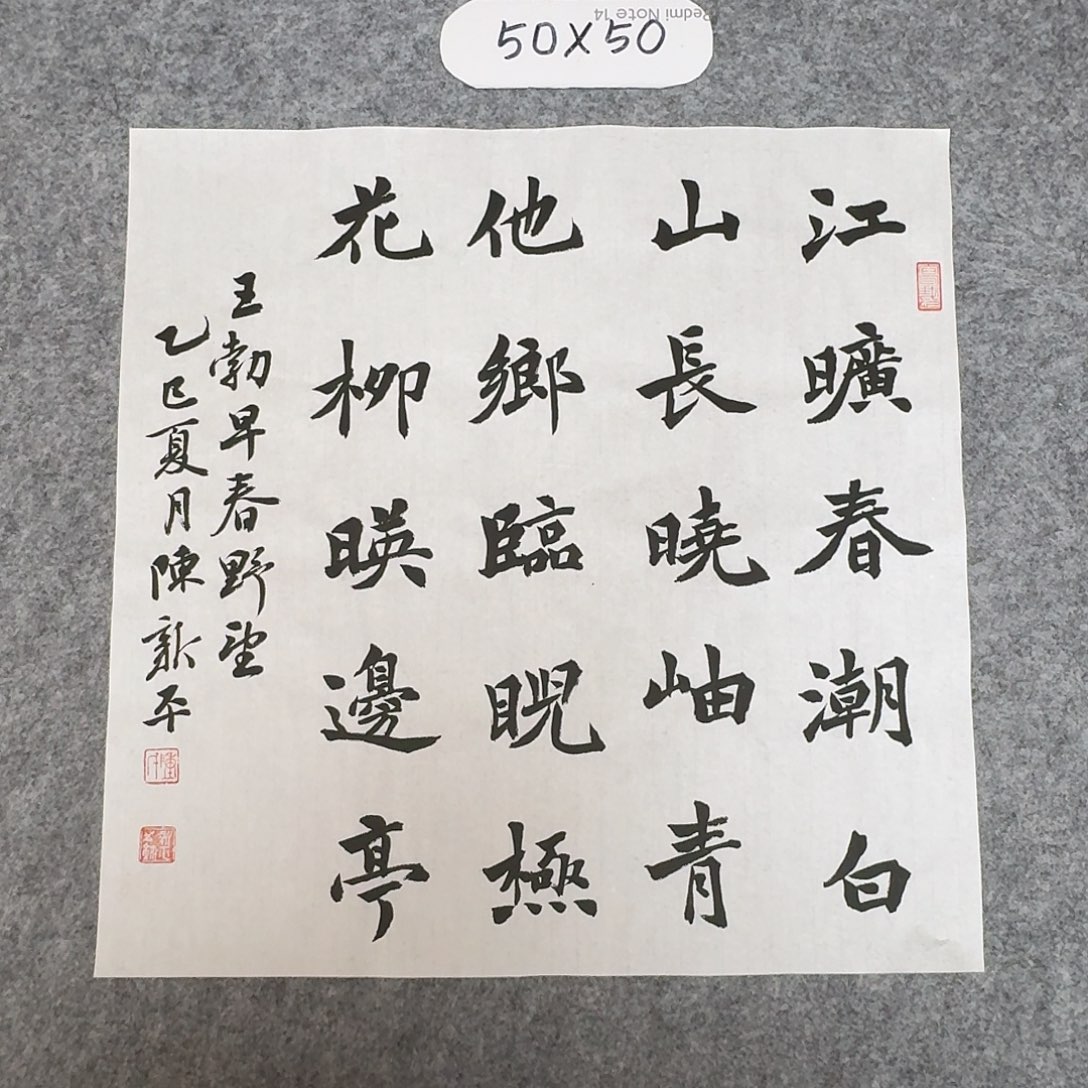 Redmi Note 14
50X50
江曠春潮白
山長曉岫青
他鄉臨睨極
花柳暎邊亭
王勃早春野望
乙巳夏月陳新平